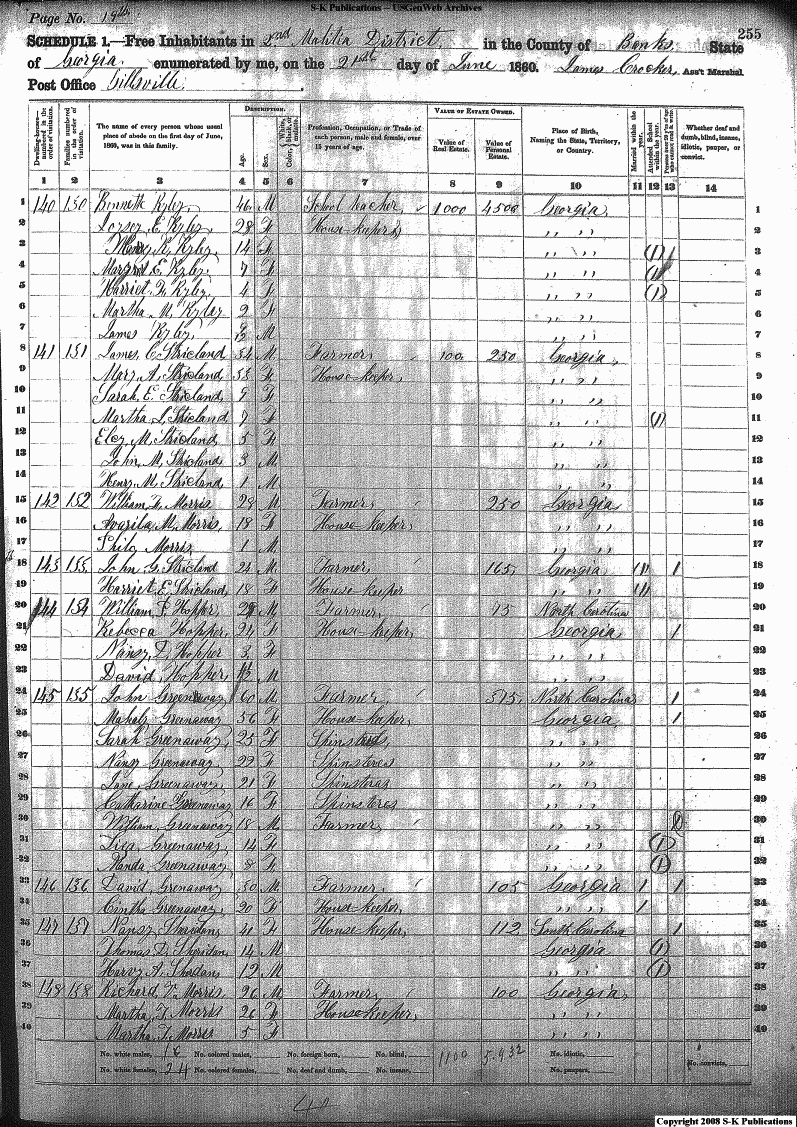 S-K Publications -- USGenWeb Archives
Page No. 19th
255
SCHEDULE 1.—Free Inhabitants in 2nd Malitia District in the County of Banks State
of Georgia enumerated by me, on the 21st day of June 1860. James Crocker, Ass't Marshal.
Post Office Gillsville
Dwelling-houses—numbered in the order of visitation.
Families numbered in the order of visitation.
The name of every person whose usual place of abode on the first day of June, 1860, was in this family.
DESCRIPTION.
Age.
Sex.
Color, White, black, or mulatto.
Profession, Occupation, or Trade of each person, male and female, over 15 years of age.
VALUE OF ESTATE OWNED.
Value of Real Estate.
Value of Personal Estate.
Place of Birth, Naming the State, Territory, or Country.
Married within the year.
Attended School within the year.
Whether deaf and dumb, blind, insane, idiotic, pauper, or convict.
1 2 3 4 5 6 7 8 9 10 11 12 13 14
1 140 150 Bennett Kyley, 46 M School teacher 1000 4500 Georgia, 1
2 E. Kyley, 28 F House-keeper, ,, ,, 2
3 K. Kyley, 14 F ,, ,, (1) 1 3
4 Margrit E. Kyley, 7 F ,, ,, (1) 4
5 Harriet F. Kyley, 4 F ,, ,, (1) 5
6 Martha M. Kyley 2 F ,, ,, 6
7 James Kyley, M ,, ,, 7
8 141 151 James C. Stricland 34 M Farmer, 100 250 Georgia, 8
9 Mary A. Stricland, 33 F House-keeper, ,, ,, 9
10 Sarah E. Stricland, 9 F ,, ,, 10
11 Martha L. Stricland, 7 F ,, ,, (1) 11
12 Elez. M. Stricland 5 F ,, ,, 12
13 John M. Stricland, 3 M ,, ,, 13
14 Henry M. Stricland, 1 M ,, ,, 14
15 142 152 William F. Morris 28 M Farmer, 250 Georgia, 15
16 Avarila M. Morris, 18 F House keeper, ,, ,, 16
17 Philo Morris 1 M ,, ,, 17
18 143 153 John G. Stricland 24 M Farmer, 165 Georgia, 1 1 18
19 Harriet E. Stricland, 18 F House keeper ,, ,, 1 19
20 144 154 William F. Hopper 28 M Farmer, 75 North Carolina 20
21 Rebecca Hopper, 24 F House-keeper, Georgia, 1 21
22 Nancy D. Hopper 3 F ,, ,, 22
23 David Hopper, M ,, ,, 23
24 145 155 John Greenaway, 60 M Farmer, 575 North Carolina 1 24
25 Mahaly Greenaway 56 F House-keeper, Georgia, 1 25
26 Sarah Greenaway, 25 F Spinsteres ,, ,, 26
27 Nancy Greenaway, 22 F Spinsteres ,, ,, 27
28 Jane Greenaway, 21 F Spinsteras ,, ,, 28
29 Catharine Greenaway 16 F Spinsteres ,, ,, 29
30 William, Greenaway 18 M Farmer, ,, ,, 30
31 Greenaway, 14 F ,, ,, (1) 31
32 Manda Greenaway, 8 F ,, ,, (1) 32
33 146 156 David, Grenaway 30 M Farmer, 105 Georgia 1 1 33
34 Cintha Greenaway, 20 F House-keeper, ,, ,, 1 34
35 147 157 Nancy Sheridan, 41 F House-keeper, 112 South Carolina 1 35
36 Thomas D. Sheridan, 14 M Georgia (1) 36
37 Harvy A. Shordan, 12 M ,, ,, (1) 37
38 148 158 Richard T. Morris, 26 M Farmer, 100 Georgia, 38
39 Martha, F. Morris 26 F House keeper, ,, ,, 39
40 Martha, T. Morris 5 F ,, ,, 40
No. white males, 16 No. colored males, No. foreign born, No. blind, 1100 5.932 No. idiotic,
No. white females, 24 No. colored females, No. deaf and dumb, No. insane, No. paupers, No. convicts,
40
Copyright 2008 S-K Publications